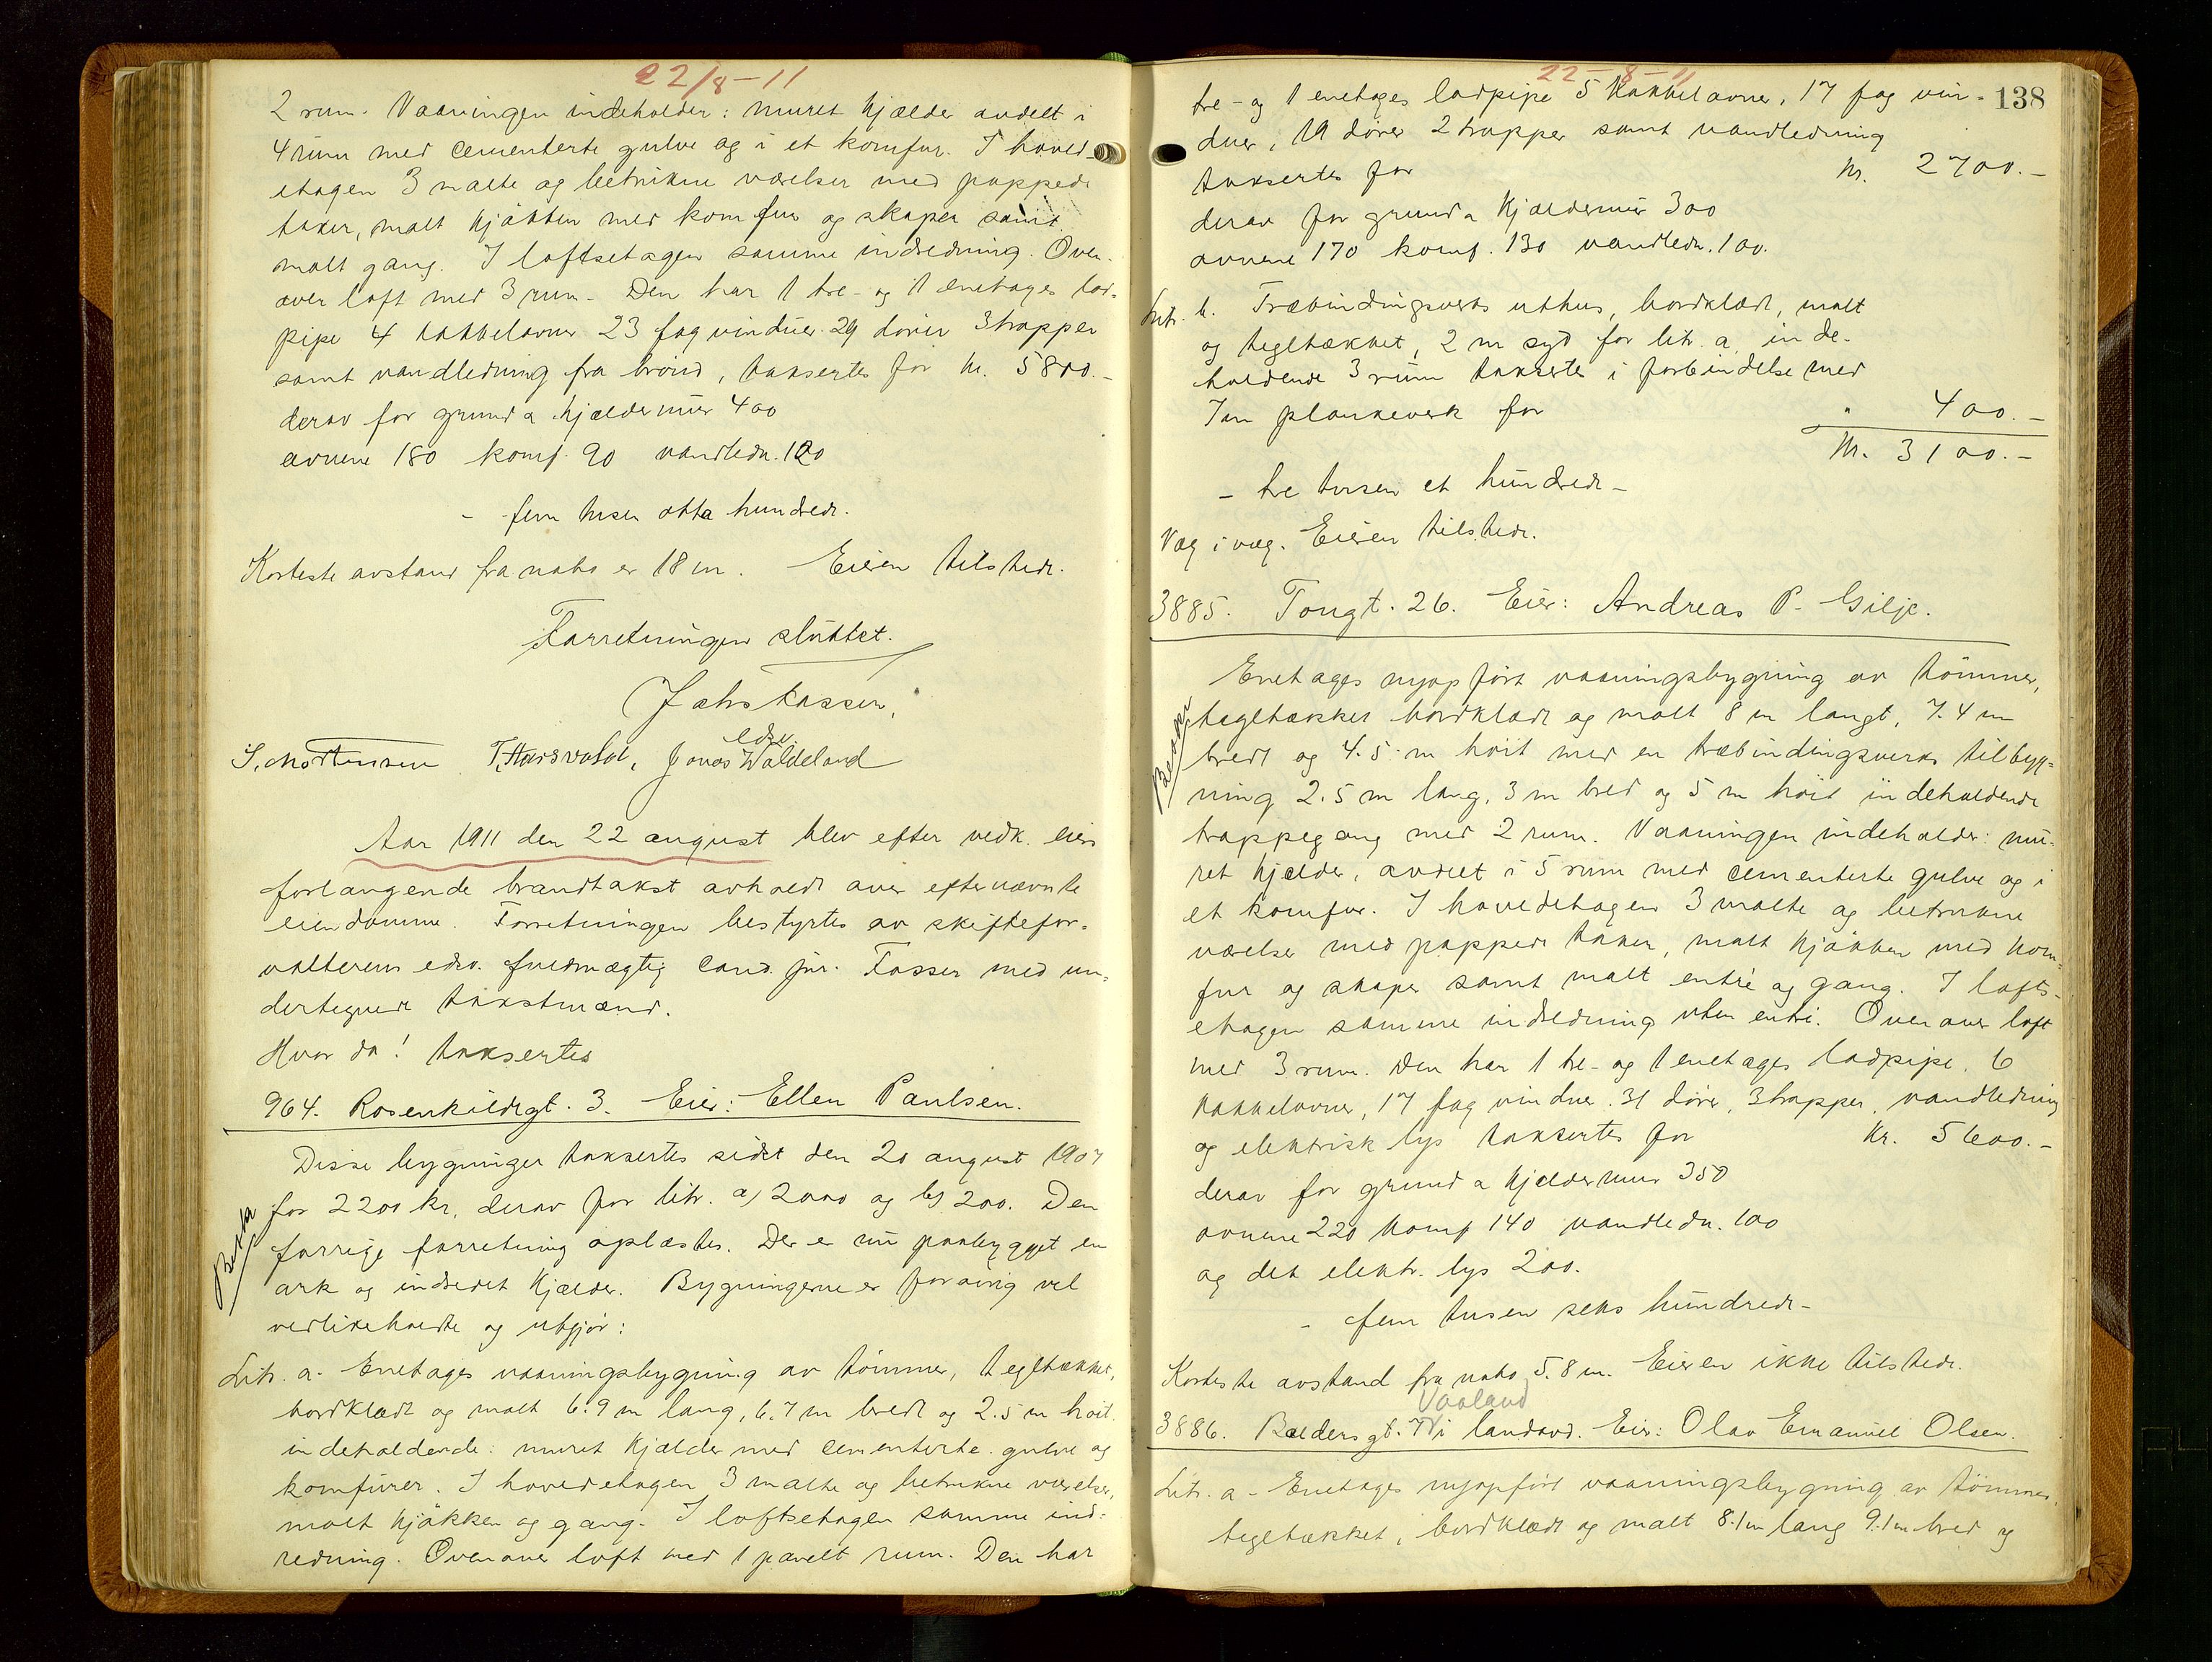 22/8-11
2 rum. Vaaningen indeholder: muret kjælder avdelt i
4 rum med cementerte gulve og i et komfur. I hoved-
etagen 3 malte og betrukne værelser med pappede
taker, malt kjøkken med komfur og skaper samt
malt gang. I loftsetagen samme indredning. Over-
over loft med 3 rum. Den har 1 tre- og 1 enetages lod-
pipe 4 kakkelovner 23 fag vinduer 29 dører 3 trapper
samt vandledning fra brønd, taksertes for kr. 5800.-
derav for grund a kjældermur 400
ovnene 180 komf. 90 vandledn. 100
- fem tusen otte hundrede.
Korteste avstand fra nabo er 18 m. Eieren tilstede.
Forretningen sluttet.
S. Mortensen T. Hausvold, Jonas Waldeland
edsv.
Aar 1911 den 22 august blev efter vedk. eiers
forlangende brandtakst avholdt over efternævnte
eiendomme. Forretningen bestyrtes av skiftefor-
valterens edsv. fuldmægtig cand. jur. Fasser med un-
dertegnede takstmænd.
Hvor da! taksertes
964. Rosenkildegt. 3. Eier: Ellen Paulsen.
Disse bygninger taksertes sidst den 20 august 1907
for 2200 kr. derav for litr. a) 2000 og b) 200. Den
forrige forretning oplæstes. Der er nu paabygget en
ark og indredet kjælder. Bygningerne er forøvrig vel
vedlikeholdte og utgjør:
Litr. a. Enetages vaaningsbygning av tømmer, tegltækket,
bordklædt og malt 6.9 m lang, 6.7 m bredt og 2.5 m høit
indeholdende: muret kjælder med cementerte gulve og
komfurer. I hovedetagen 3 malte og betrukne værelser,
malt kjøkken og gang. I loftsetagen samme ind-
redning. Overover loft med 1 panelt rum. Den har
22-8-11
138
tre- og 1 enetages lodpipe 5 kakkelovner, 17 fag vin-
duer, 19 dører 2 trapper samt vandledning
taksertes for kr. 2700.-
derav for grund a kjældermur 300
ovnene 170 komf. 130 vandledn. 100.
Litr. b. Træbindingsverks uthus, bordklædt, malt
og tegltækket, 2 m syd for litr. a. inde-
holdende 3 rum taksertes i forbindelse med
7 m plankeverk for " 400.-
kr. 3100.-
- tre tusen et hundrede -
Væg i væg. Eieren tilstede.
3885. Tougt. 26. Eier: Andreas P. Gilje.
Enetages nyopført vaaningsbygning av tømmer,
tegltækket bordklædt og malt 8 m langt, 7.4 m
bredt og 4.5 m høit med en træbindingsverks tilbyg-
ning 2.5 m lang, 3 m bred og 5 m høit indeholdende
trappegang med 2 rum. Vaaningen indeholder: mu-
ret kjælder, avdelt i 5 rum med cementerte gulve og i
et komfur. I hovedetagen 3 malte og betrukne
værelser med pappede taker, malt kjøkken med kom-
fur og skaper samt malt entré og gang. I lofts-
etagen samme indredning uten entré. Overover loft
med 3 rum. Den har 1 tre- og 1 enetages lodpipe, 6
kakkelovner, 17 fag vinduer 31 dører, 3 trapper, vandledning
og elektrisk lys taksertes for kr. 5600.-
derav for grund a kjældermur 350
ovnene 220 komf 140 vandledn. 100
og det elektr. lys 200.
- fem tusen seks hundrede -
Korteste avstand fra nabo 5.8 m. Eieren ikke tilstede.
Vaaland
3886. Baldersgt. 7 i landsvd. Eier: Olav Emanuel Olsen.
Litr. a - Enetages nyopført vaaningsbygning av tømmer,
tegltækket, bordklædt og malt 8.1 m lang 9.1 m bred og